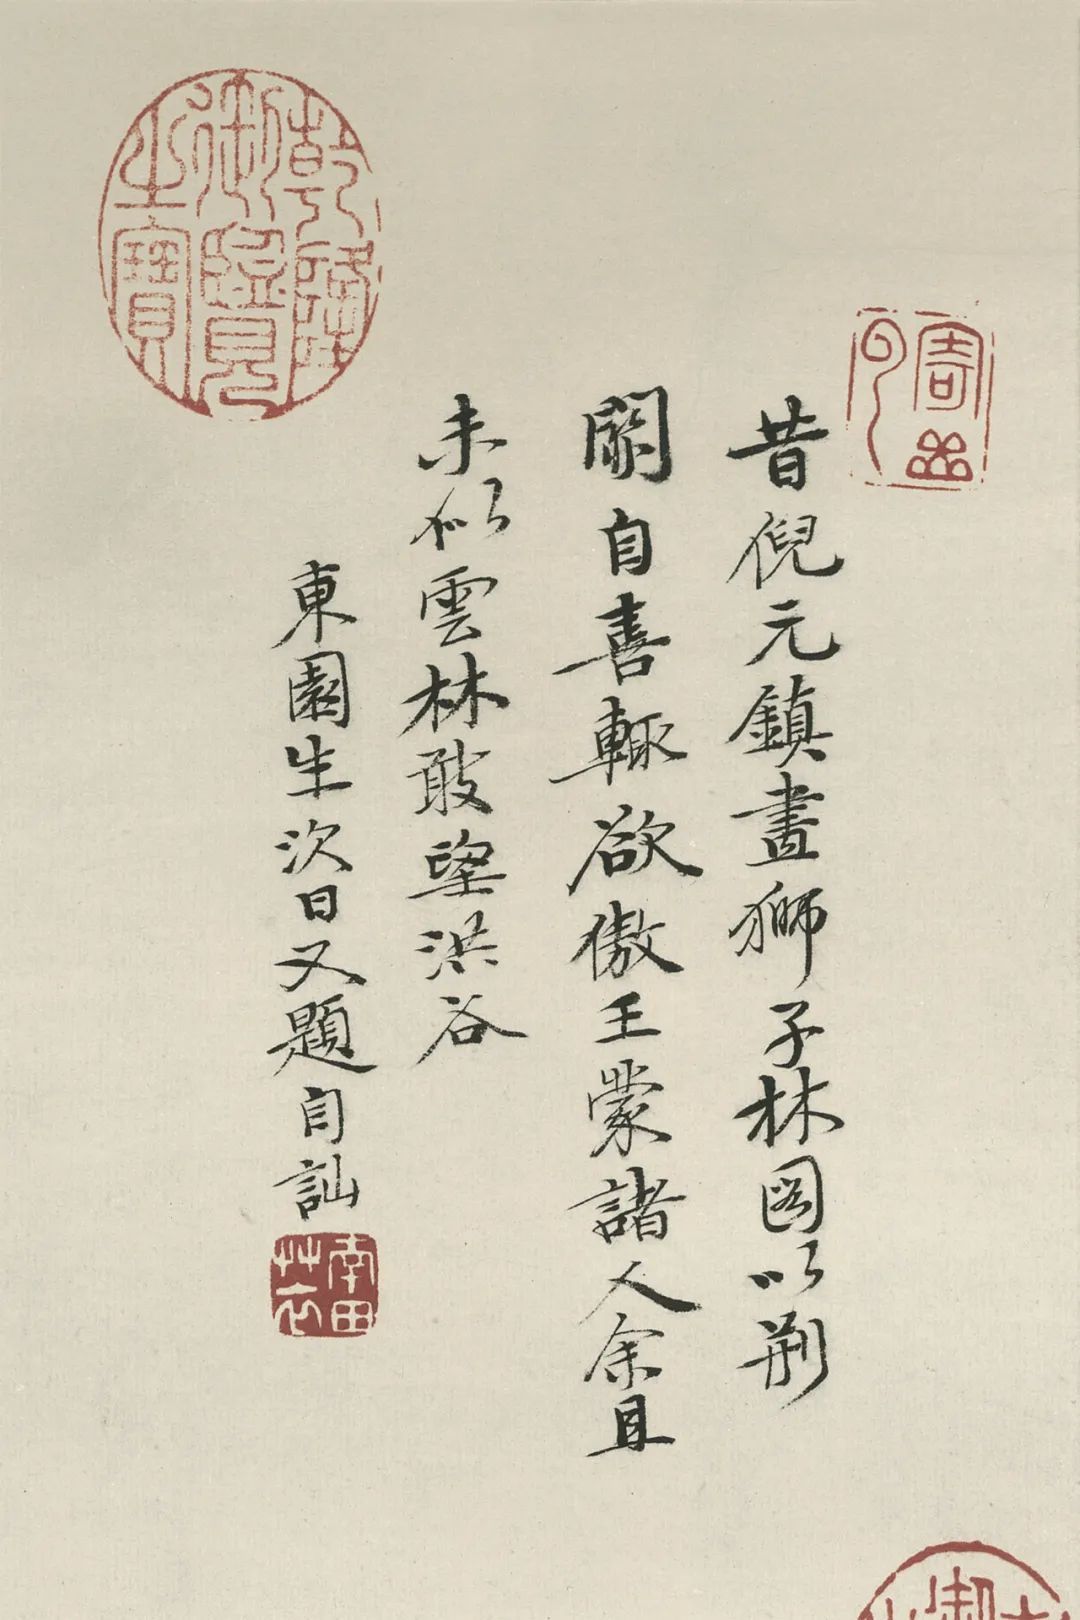 昔倪元鎮畫獅子林图以荆
關自喜輒欲傲王蒙諸人余且
未似雲林敢望洪谷
東園生次日又題自訕
乾隆
御覽
之寶
寄岳
云
南田
艸衣